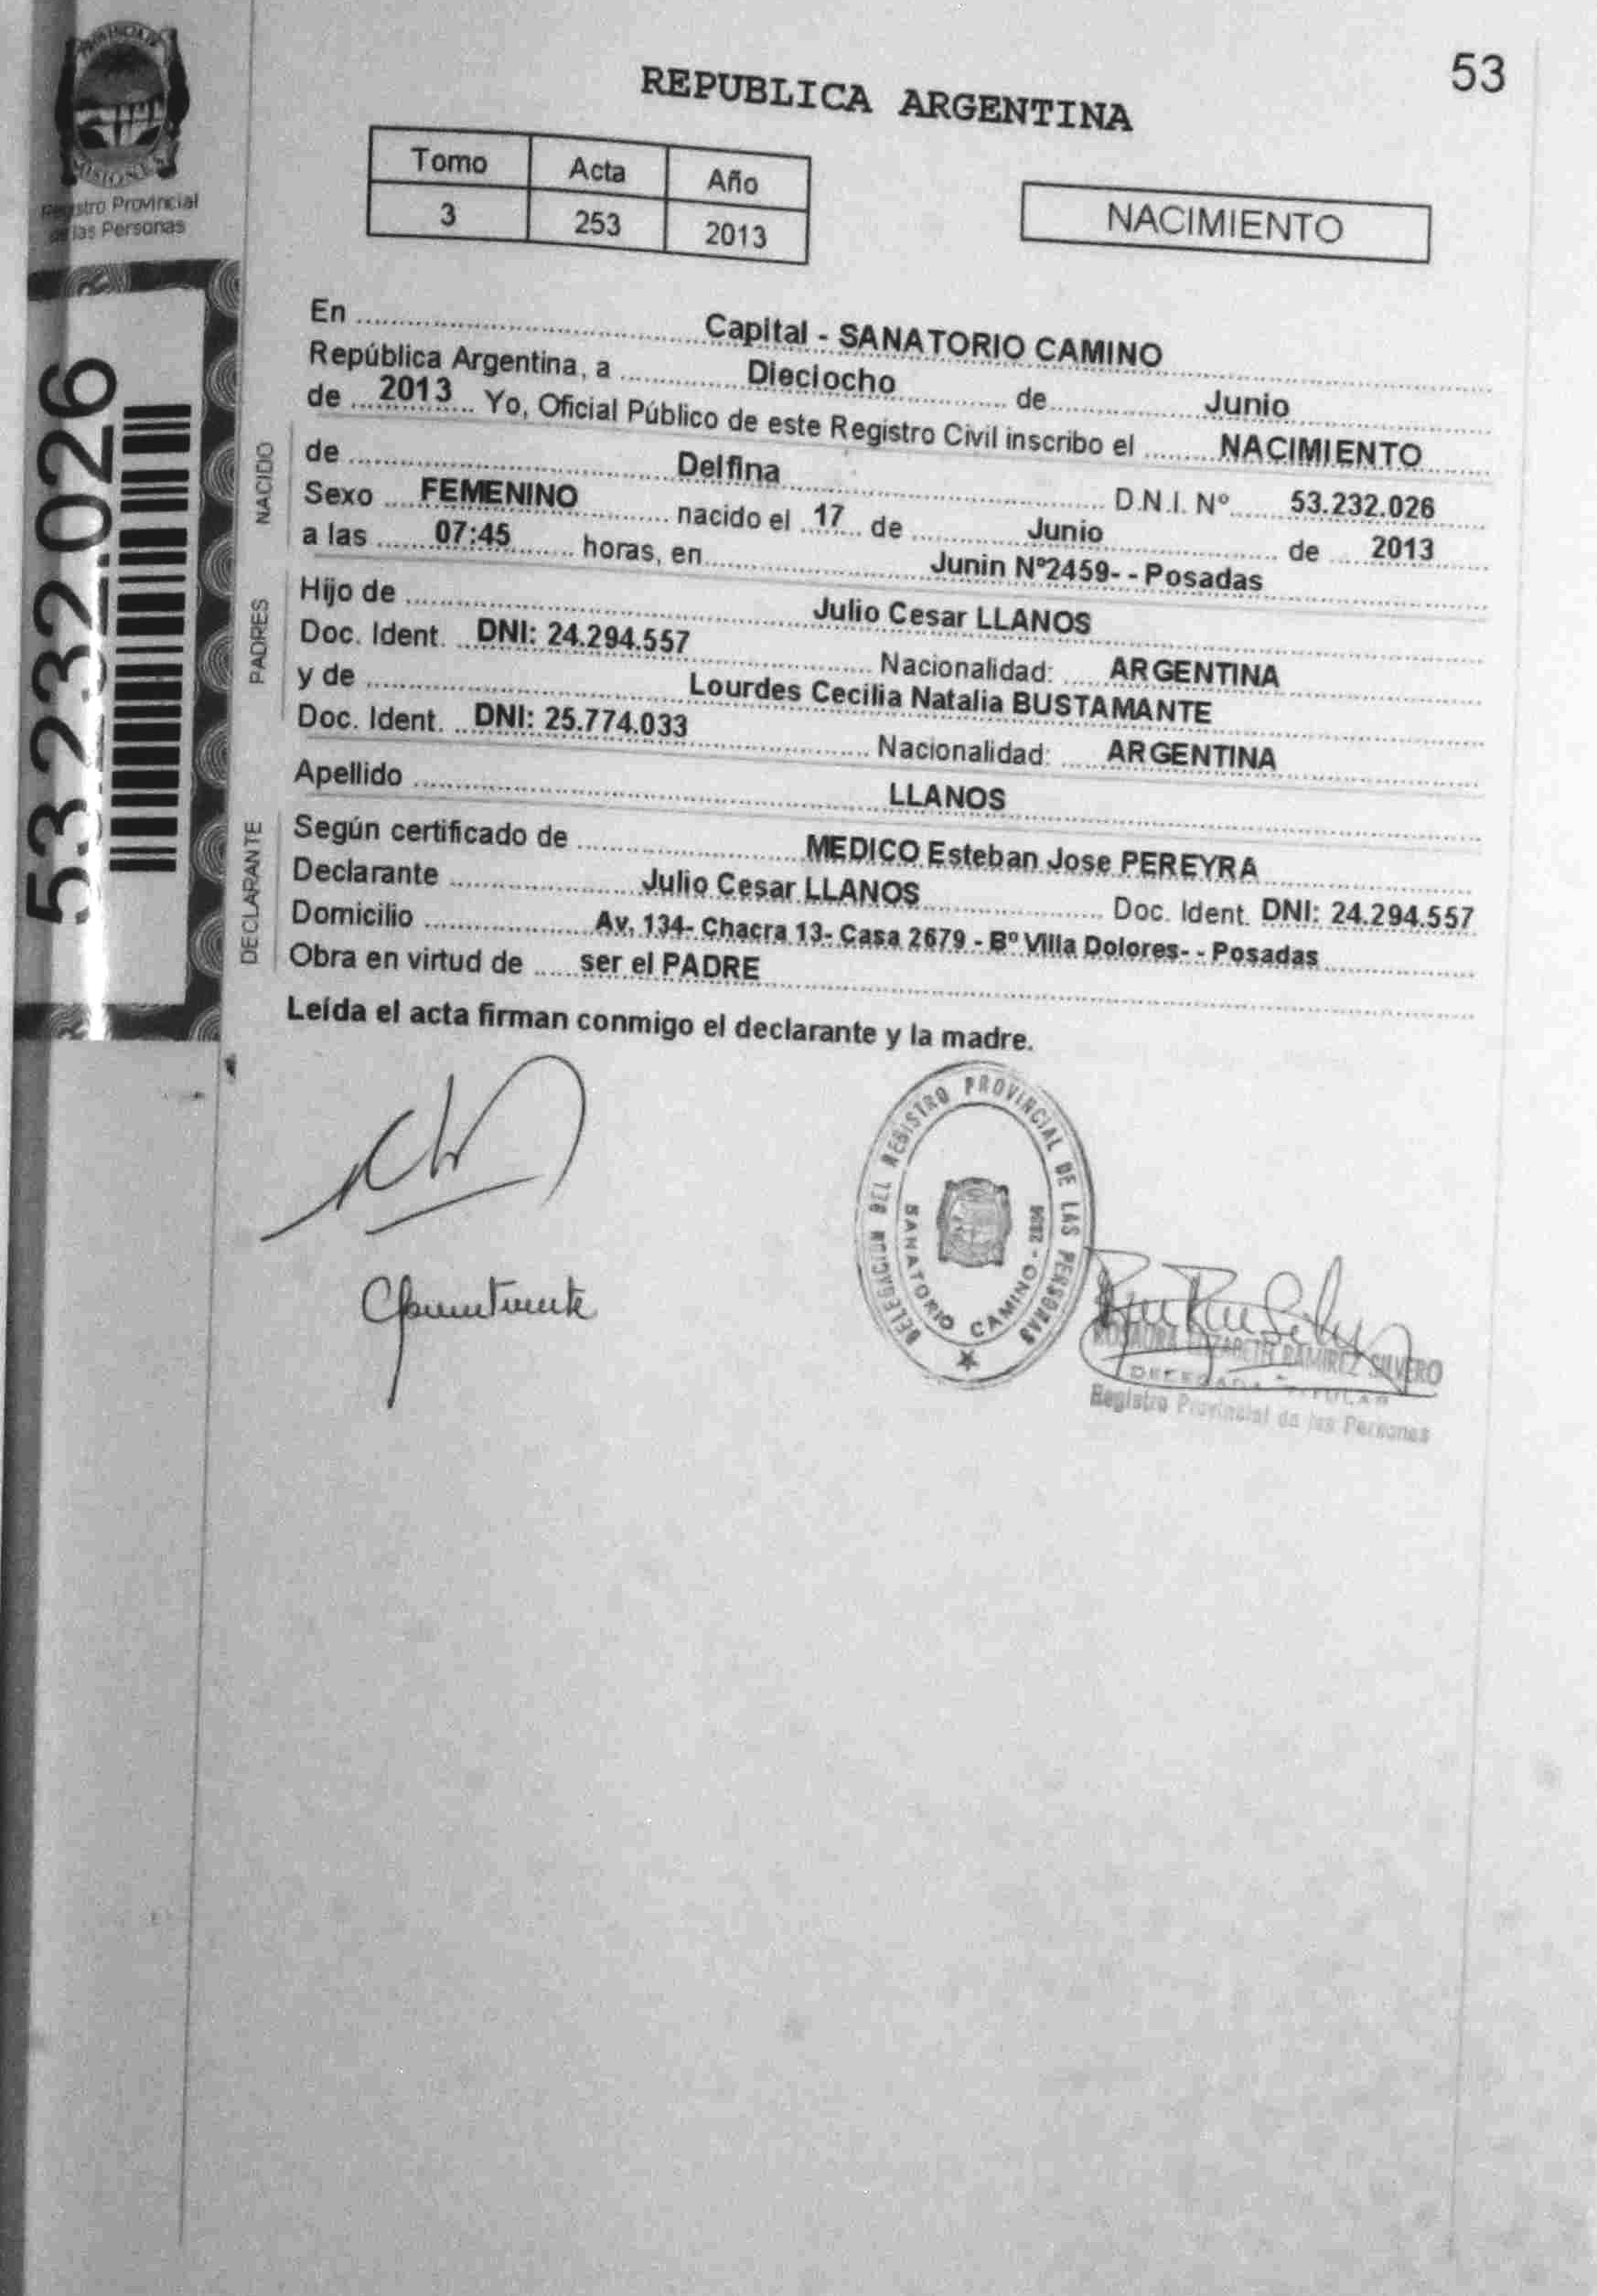 53
PROVINCIA DE
MISIONES
Registro Provincial
de las Personas
REPUBLICA ARGENTINA
Tomo Acta Año
3 253 2013
NACIMIENTO
53.232.026
En Capital - SANATORIO CAMINO
República Argentina, a Dieciocho de Junio
de 2013 Yo, Oficial Público de este Registro Civil inscribo el NACIMIENTO
NACIDO
de Delfina D.N.I. Nº 53.232.026
Sexo FEMENINO nacido el 17 de Junio de 2013
a las 07:45 horas, en Junin Nº2459- - Posadas
PADRES
Hijo de Julio Cesar LLANOS
Doc. Ident. DNI: 24.294.557 Nacionalidad: ARGENTINA
y de Lourdes Cecilia Natalia BUSTAMANTE
Doc. Ident. DNI: 25.774.033 Nacionalidad: ARGENTINA
Apellido LLANOS
DECLARANTE
Según certificado de MEDICO Esteban Jose PEREYRA
Declarante Julio Cesar LLANOS Doc. Ident. DNI: 24.294.557
Domicilio Av. 134- Chacra 13- Casa 2679 - Bº Villa Dolores- - Posadas
Obra en virtud de ser el PADRE
Leída el acta firman conmigo el declarante y la madre.
DELEGACION DEL REGISTRO PROVINCIAL DE LAS PERSONAS
SANATORIO CAMINO - 2836
RAMIREZ SILVERO
DELEGADA TITULAR
Registro Provincial de las Personas